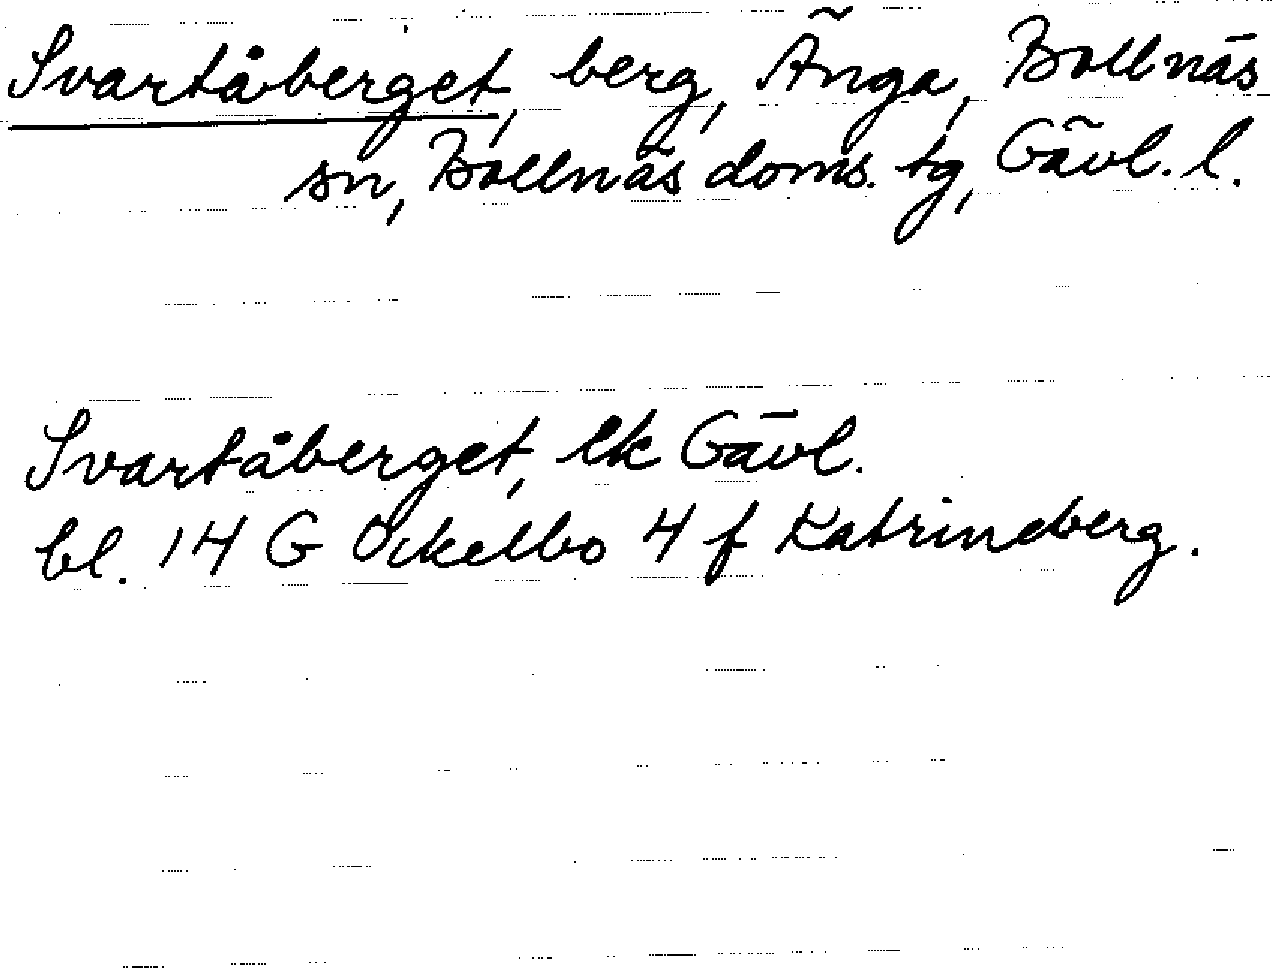 Svartåberget, berg, Änga, Bollnäs
sn, Bollnäs doms. tg, Gävl. l.
Svartåberget, ek Gävl.
bl. 14 G Ockelbo 4 f Katrineberg.